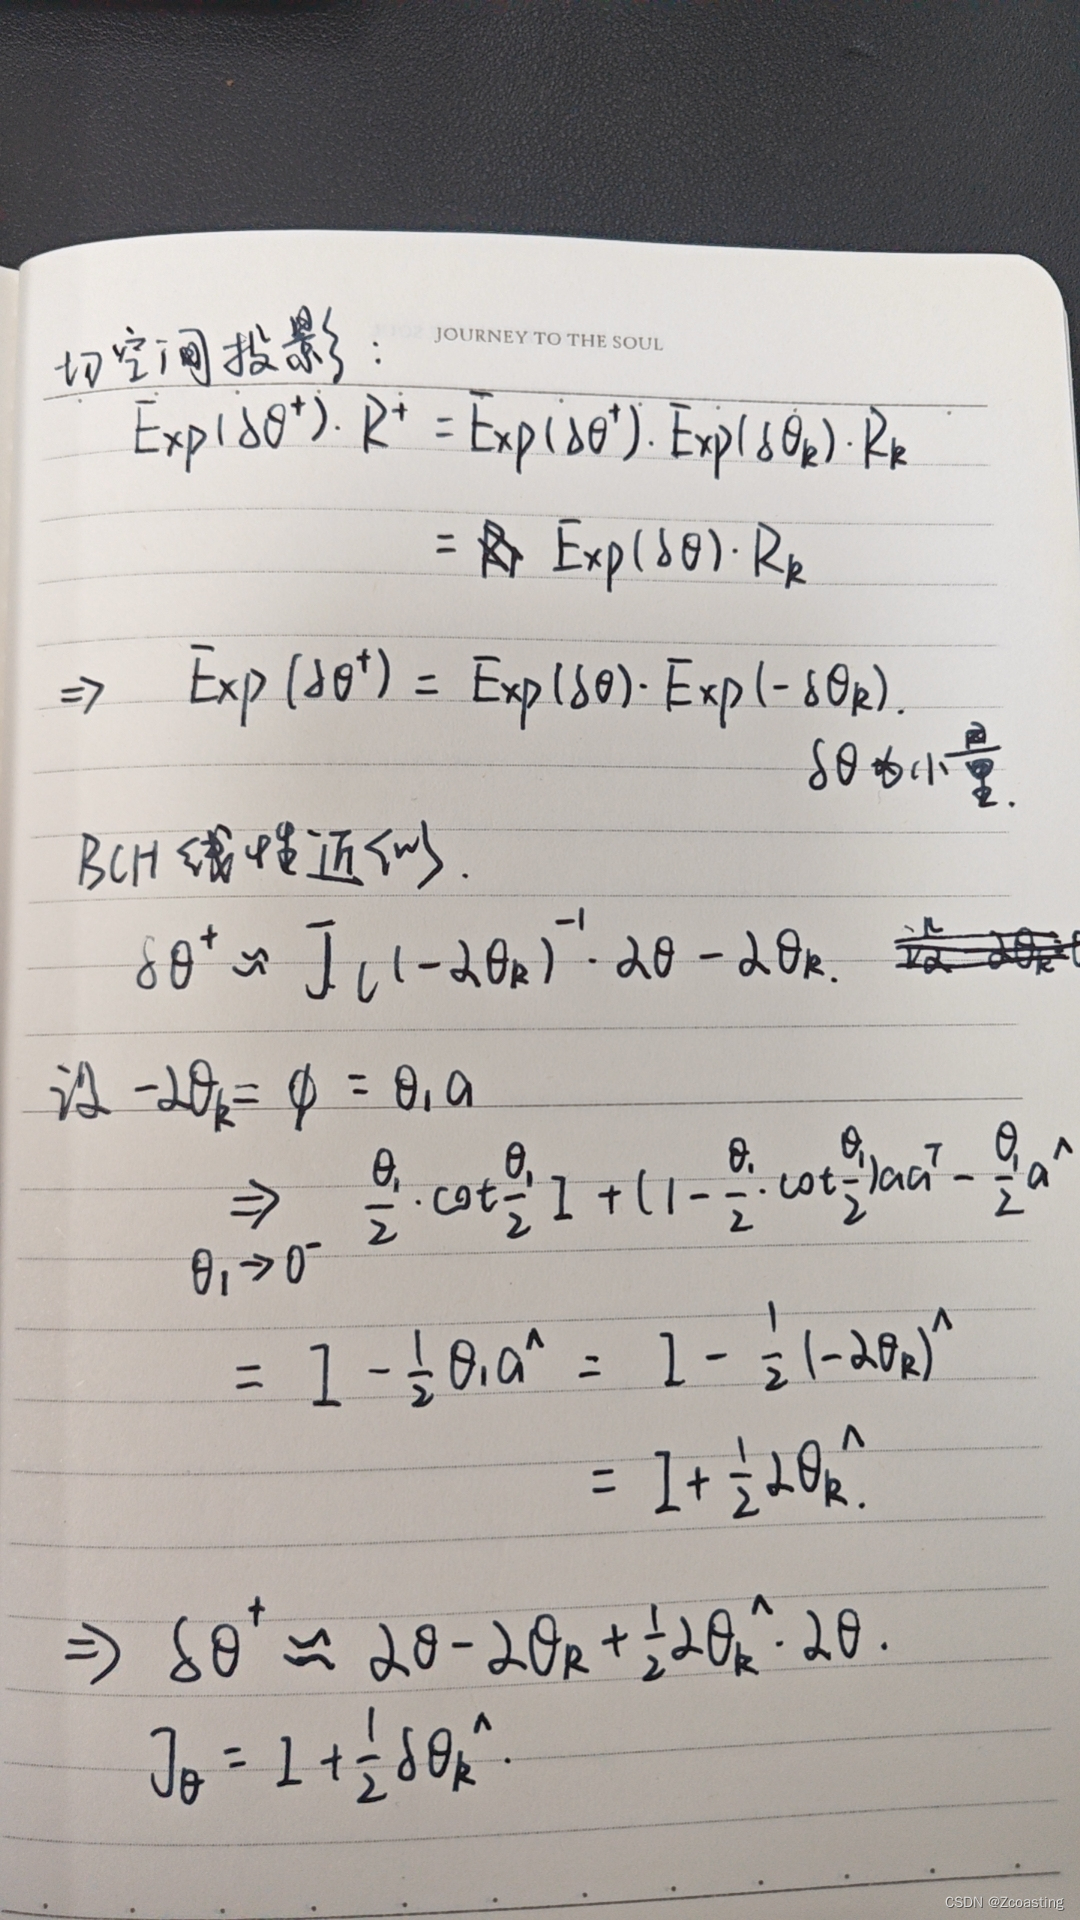 JOURNEY TO THE SOUL
切空间投影:
Exp(δθ⁺)·R⁺ = Exp(δθ⁺)·Exp(δθₖ)·Rₖ
= Exp(δθ)·Rₖ
⇒ Exp(δθ⁺) = Exp(δθ)·Exp(-δθₖ).
δθ为小量.
BCH线性近似.
δθ⁺ ≈ Jₗ(-2θₖ)⁻¹·2θ - 2θₖ.
设 -2θₖ = ϕ = θ₁a
⇒ θ₁/2·cot θ₁/2 I + (1 - θ₁/2·cot θ₁/2)aaᵀ - θ₁/2 a^
θ₁→0⁻
= I - 1/2 θ₁a^ = I - 1/2 (-2θₖ)^
= I + 1/2 2θₖ^.
⇒ δθ⁺ ≈ 2θ - 2θₖ + 1/2 2θₖ^·2θ.
J_θ = I + 1/2 δθₖ^.
CSDN @Zcoasting